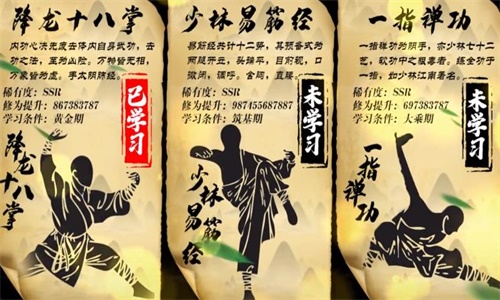 降龙十八掌
内功心法无度去降内自身武功，去
功之法，至刚山险。万特皆无相，
万象皆为虚。手太阴肺经。
稀有度：SSR
修为提升：867383787
学习条件：黄金期
已学习
降龙十八掌
少林易筋经
易筋经共计十二势，其预备式为
两腿开立，头端平，目前视，口
微闭，调呼。含胸，直腰。
稀有度：SSR
修为提升：987455687887
学习条件：筑基期
未学习
少林易筋经
一指禅功
一指禅功为阴手，亦少林七十二
艺，软功中之服尊者。练全功于
一指，如少林江南署名。
稀有度：SSR
修为提升：697383787
学习条件：大乘期
未学习
一指禅功